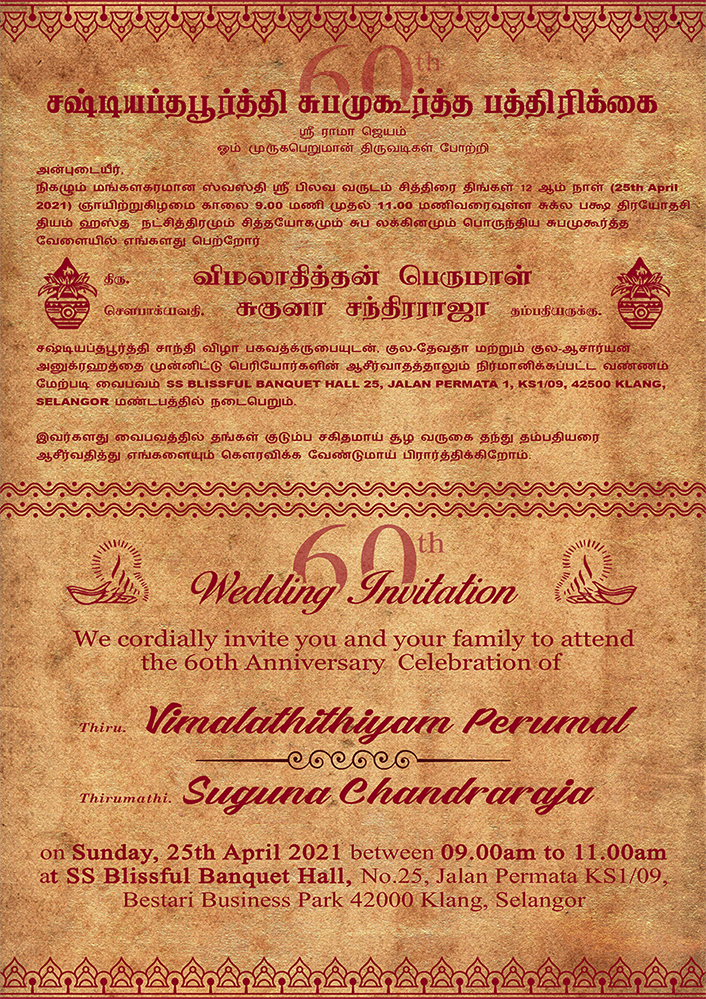 60th
சஷ்டியப்தபூர்த்தி சுபமுகூர்த்த பத்திரிக்கை
ஸ்ரீ ராமா ஜெயம்
ஓம் முருகபெறுமான் திருவடிகள் போற்றி
அன்புடையீர்,
நிகழும் மங்களகரமான ஸ்வஸ்தி ஸ்ரீ பிலவ வருடம் சித்திரை திங்கள் 12 ஆம் நாள் (25th April
2021) ஞாயிற்றுகிழமை காலை 9.00 மணி முதல் 11.00 மணிவரைவுள்ள சுக்ல பக்ஷ திரயோதசி
தியம் ஹஸ்த நட்சித்திரமும் சித்தயோகமும் சுப லக்கினமும் பொருந்திய சுபமுகூர்த்த
வேளையில் எங்களது பெற்றோர்
திரு. விமலாதித்தன் பெருமாள்
சௌபாக்யவதி. சுகுனா சந்திரராஜா தம்பதியருக்கு.
சஷ்டியப்தபூர்த்தி சாந்தி விழா பகவத்க்ருபையுடன், குல-தேவதா மற்றும் குல-ஆசார்யன்
அனுக்ரஹத்தை முன்னிட்டு பெரியோர்களின் ஆசீர்வாதத்தாலும் நிர்மானிக்கப்பட்ட வண்ணம்
மேற்படி வைபவம் SS BLISSFUL BANQUET HALL 25, JALAN PERMATA 1, KS1/09, 42500 KLANG,
SELANGOR மண்டபத்தில் நடைபெறும்.
இவர்களது வைபவத்தில் தங்கள் குடும்ப சகிதமாய் சூழ வருகை தந்து தம்பதியரை
ஆசீர்வதித்து எங்களையும் கௌரவிக்க வேண்டுமாய் பிரார்த்திக்கிறோம்.
60th
Wedding Invitation
We cordially invite you and your family to attend
the 60th Anniversary Celebration of
Thiru. Vimalathithiyam Perumal
Thirumathi. Suguna Chandraraja
on Sunday, 25th April 2021 between 09.00am to 11.00am
at SS Blissful Banquet Hall, No.25, Jalan Permata KS1/09,
Bestari Business Park 42000 Klang, Selangor